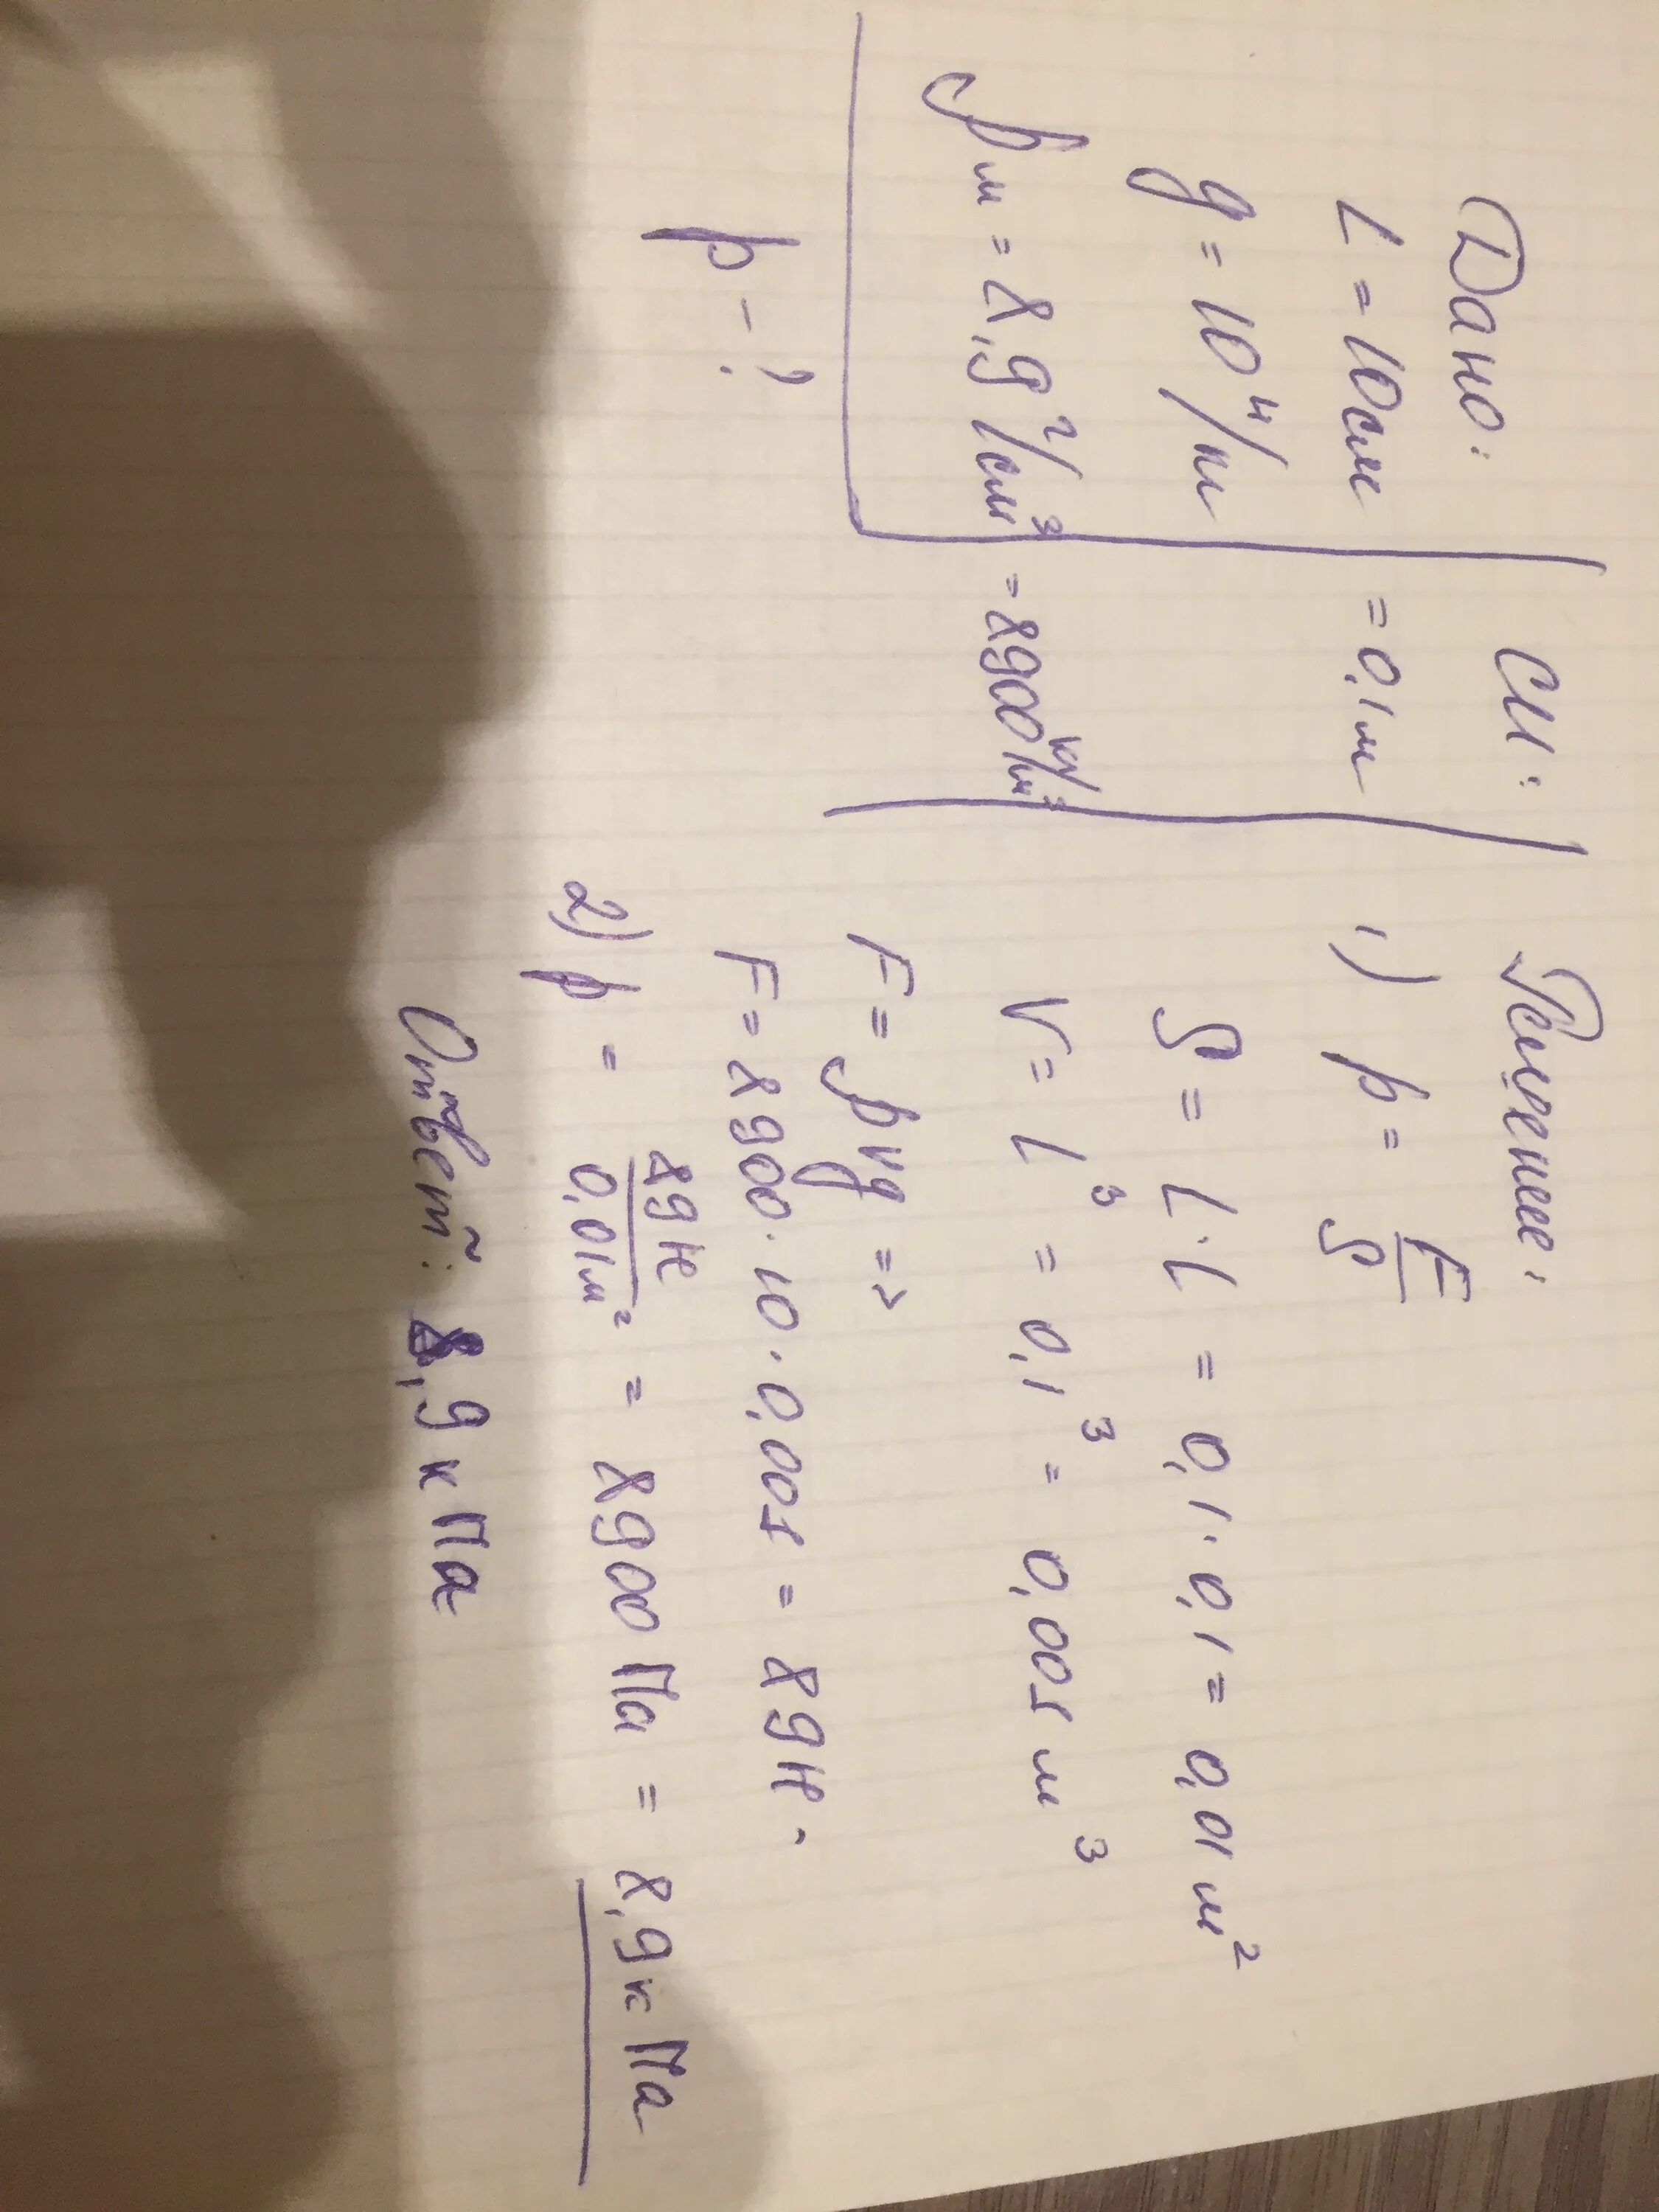 Дано:
L = 10см
g = 10 н/кг
ρм = 8,9 г/см³
p - ?
СИ:
= 0,1м
= 8900 кг/м³
Решение:
1) p = F/S
S = L · L = 0,1 · 0,1 = 0,01 м²
V = L³ = 0,1³ = 0,001 м³
F = ρVg =>
F = 8900 · 10 · 0,001 = 89Н.
2) p = 89Н/0,01м² = 8900 Па = 8,9 кПа
Ответ: 8,9 кПа